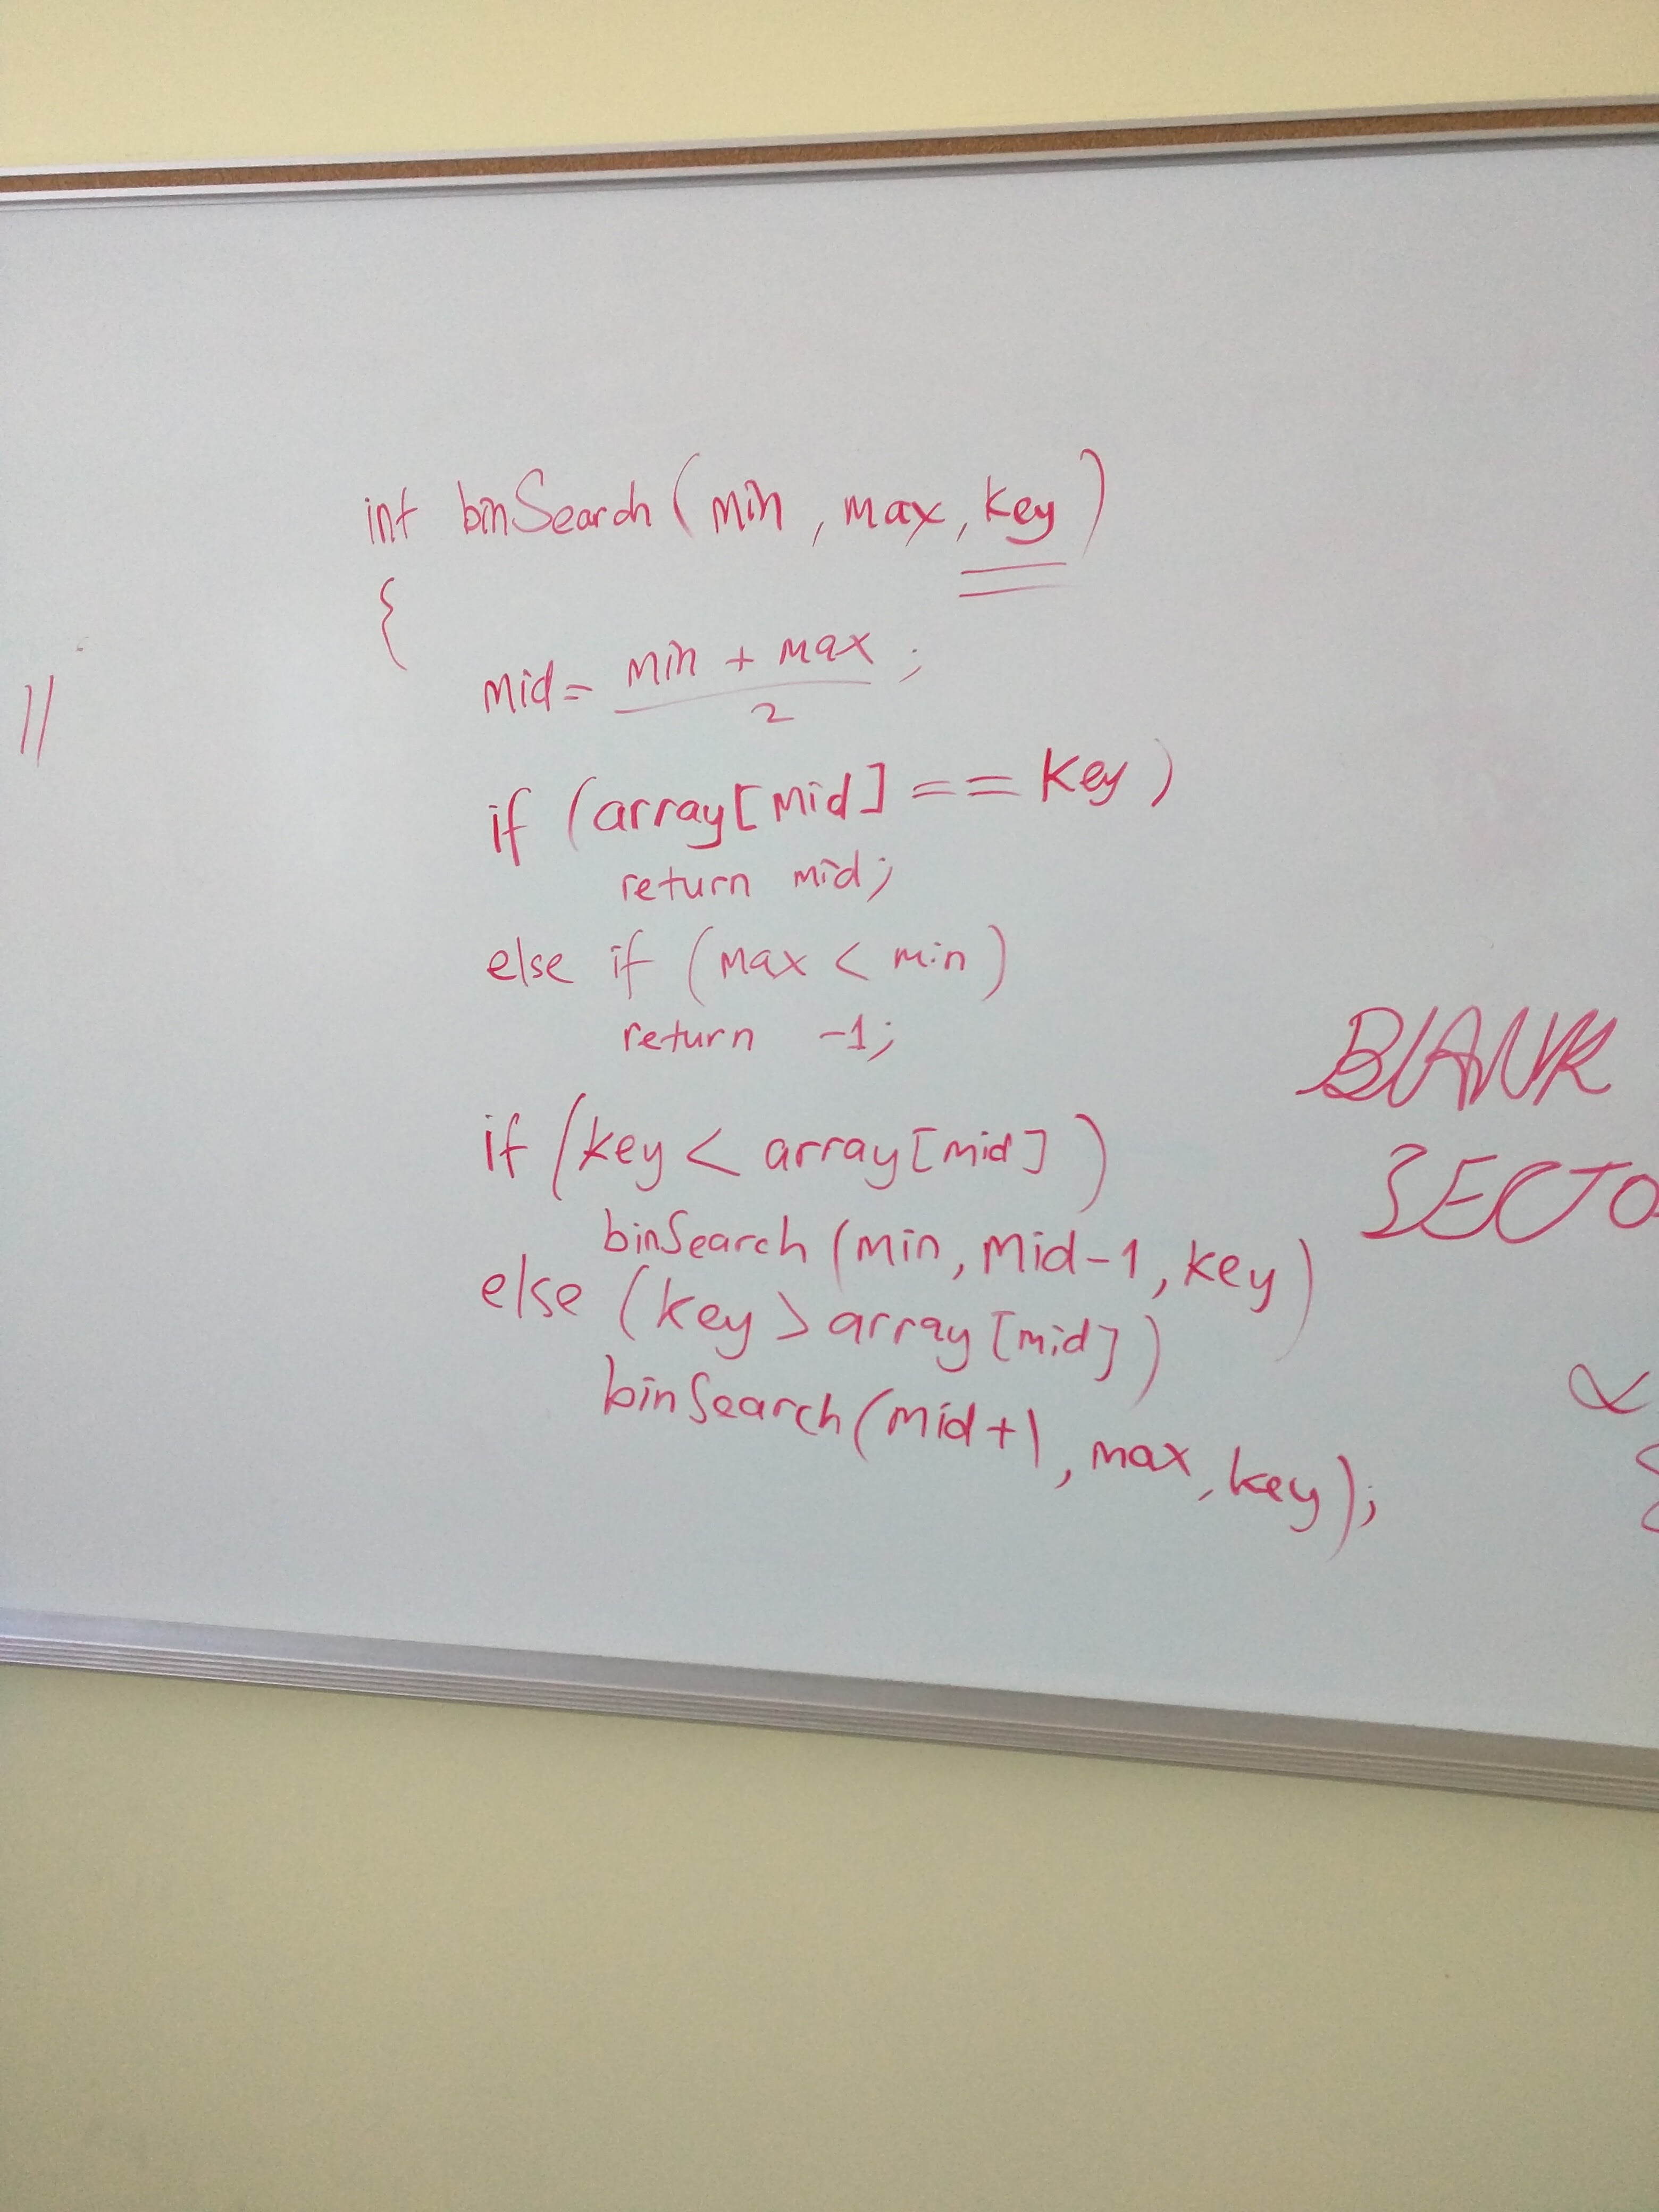 int binSearch (min, max, key)
{
mid = min + max ;
2
if (array[mid] == key)
return mid;
else if (max < min)
return -1;
if (key < array[mid])
binSearch (min, mid-1, key)
else (key > array[mid])
binSearch (mid+1, max, key);
//
BLANK
SECTO